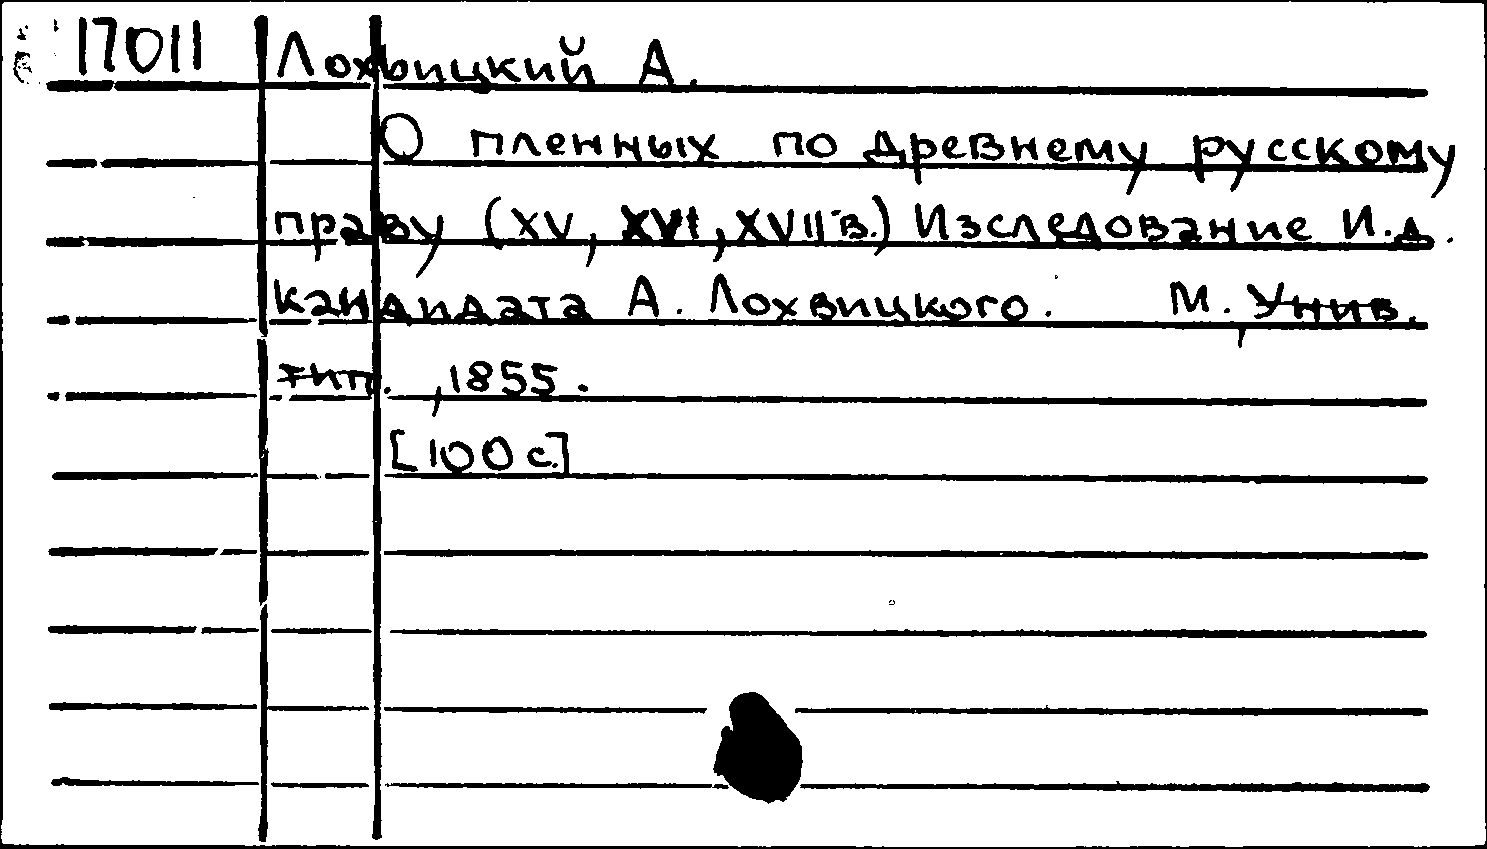 17011 Лохвицкий А.
О пленных по древнему русскому
праву (XV, XVI, XVII в.) Изследование И.д.
кандидата А. Лохвицкого. М., Унив.
тип., 1855.
[100 с.]